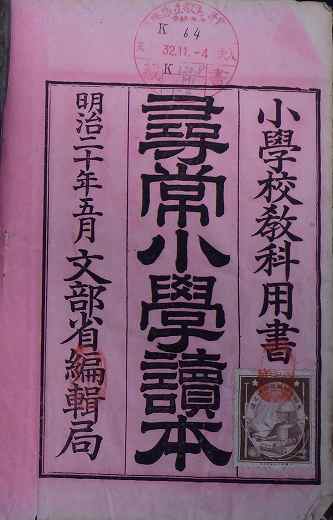 小學校教科用書
尋常小學讀本
明治二十年五月 文部省編輯局
K 64
32.11.-4
K